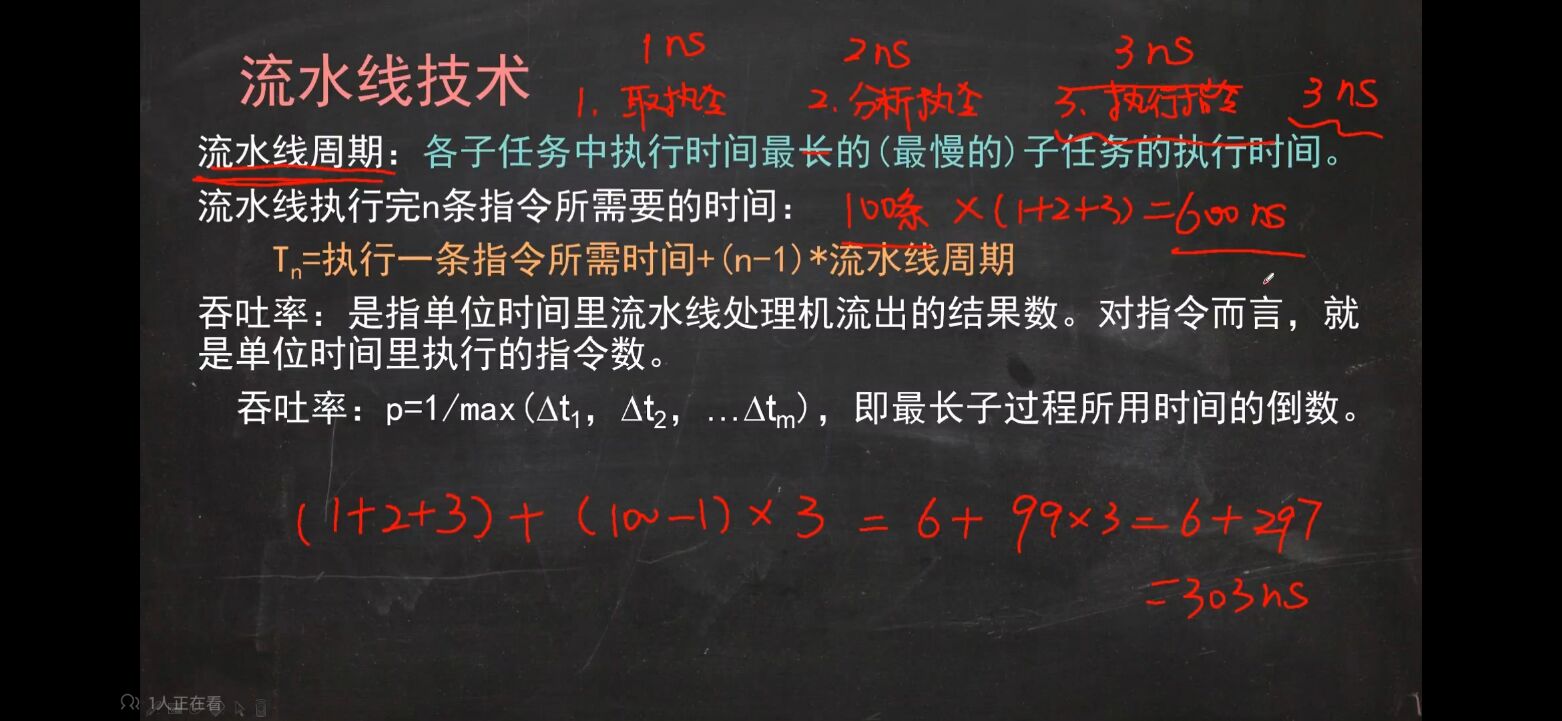 1ns 2ns 3ns
流水线技术 1. 取执令 2. 分析执令 3. 执行指令 3ns
流水线周期：各子任务中执行时间最长的(最慢的)子任务的执行时间。
流水线执行完n条指令所需要的时间： 100条 ×(1+2+3)=600ns
Tn=执行一条指令所需时间+(n-1)*流水线周期
吞吐率：是指单位时间里流水线处理机流出的结果数。对指令而言，就
是单位时间里执行的指令数。
吞吐率：p=1/max(Δt1，Δt2，…Δtm)，即最长子过程所用时间的倒数。
(1+2+3)+(100-1)×3=6+99×3=6+297
=303ns
1人正在看